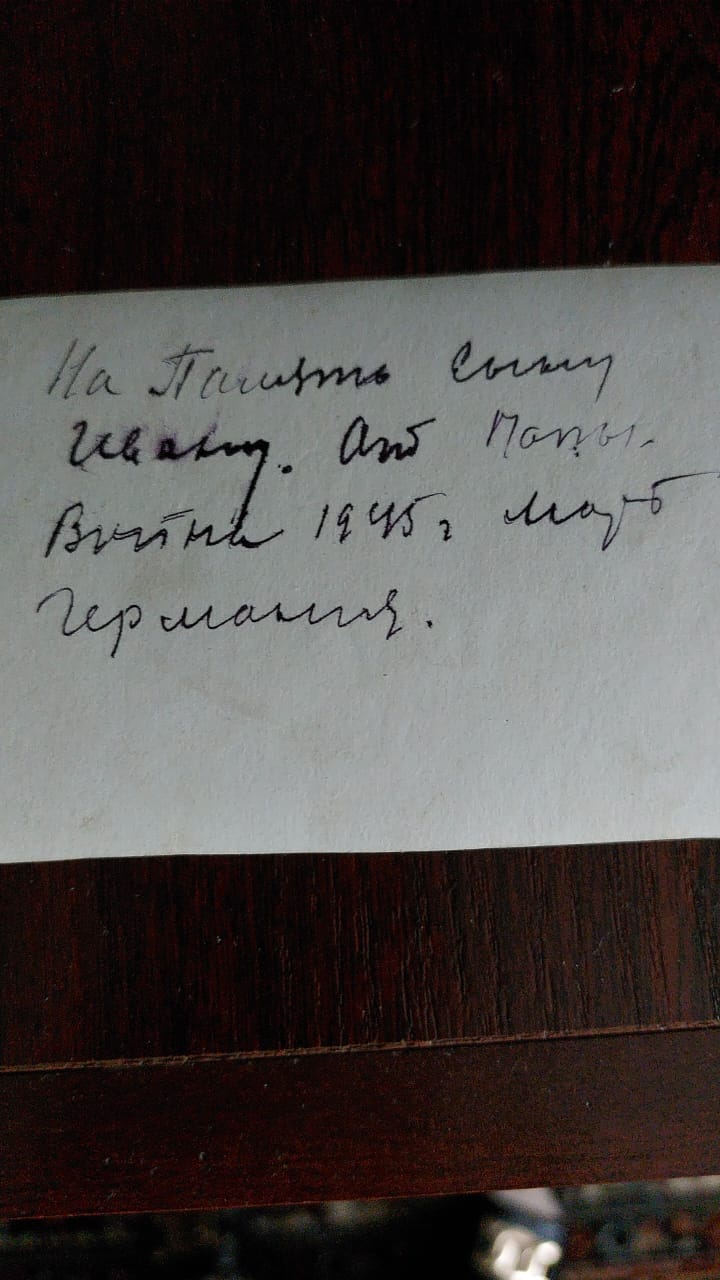 На Память сыну
Ивану. От Папы.
Война 1945г март
Германия.